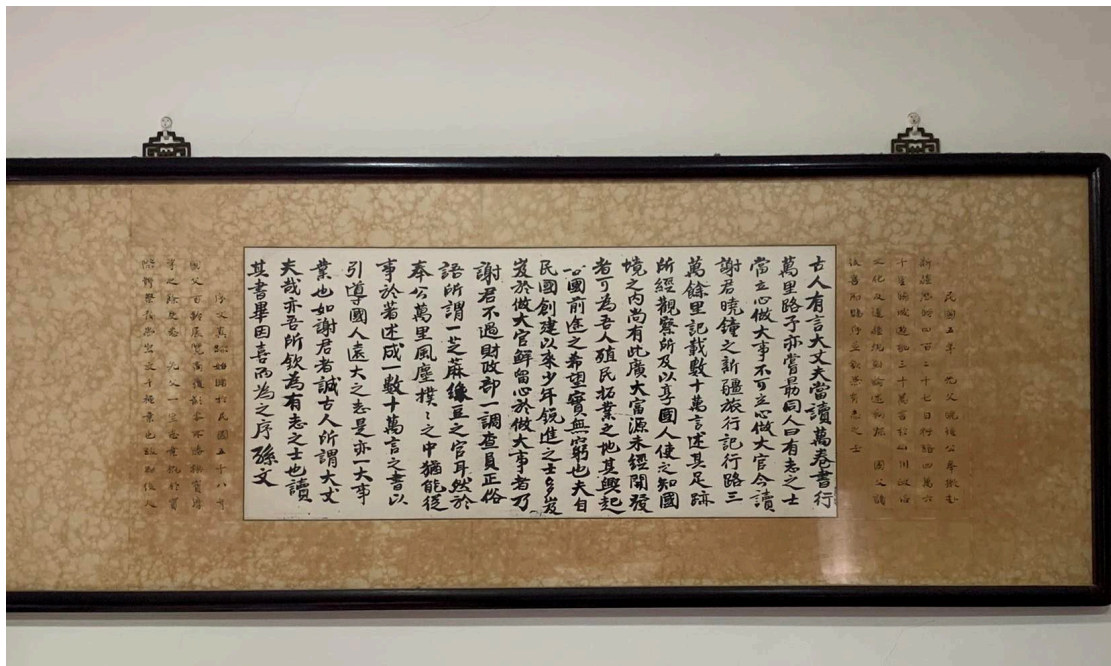 民國五年 先父曉鐘公奉
新疆歷時四百二十七日行路四萬六
千里
文化及邊疆 國父讀
後喜而賜序 有志之士
古人有言大丈夫當讀萬卷書行
萬里路予亦嘗勗同人曰有志之士
當立心做大事不可立心做大官今讀
謝君曉鐘之新疆旅行記行路三
萬餘里記載數十萬言述其足跡
所經觀察所及以享國人使之知國
境之內尚有此廣大富源未經開發
者可為吾人殖民拓業之地其興起
國前途之希望實無窮也夫自
民國創建以來少年銳進之士多岌
岌於做大官鮮留心於做大事者乃
謝君不過財政部一調查員正俗
語所謂一芝麻綠豆之官耳然於
奉公萬里風塵撲〻之中猶能從
事於著述成一數十萬言之書以
引導國人遠大之志是亦一大事
業也如謝君者誠古人所謂大丈
夫哉亦吾所欽為有志之士也讀
其書畢因喜而為之序 孫文
序文真跡 民國五十八年
國父百